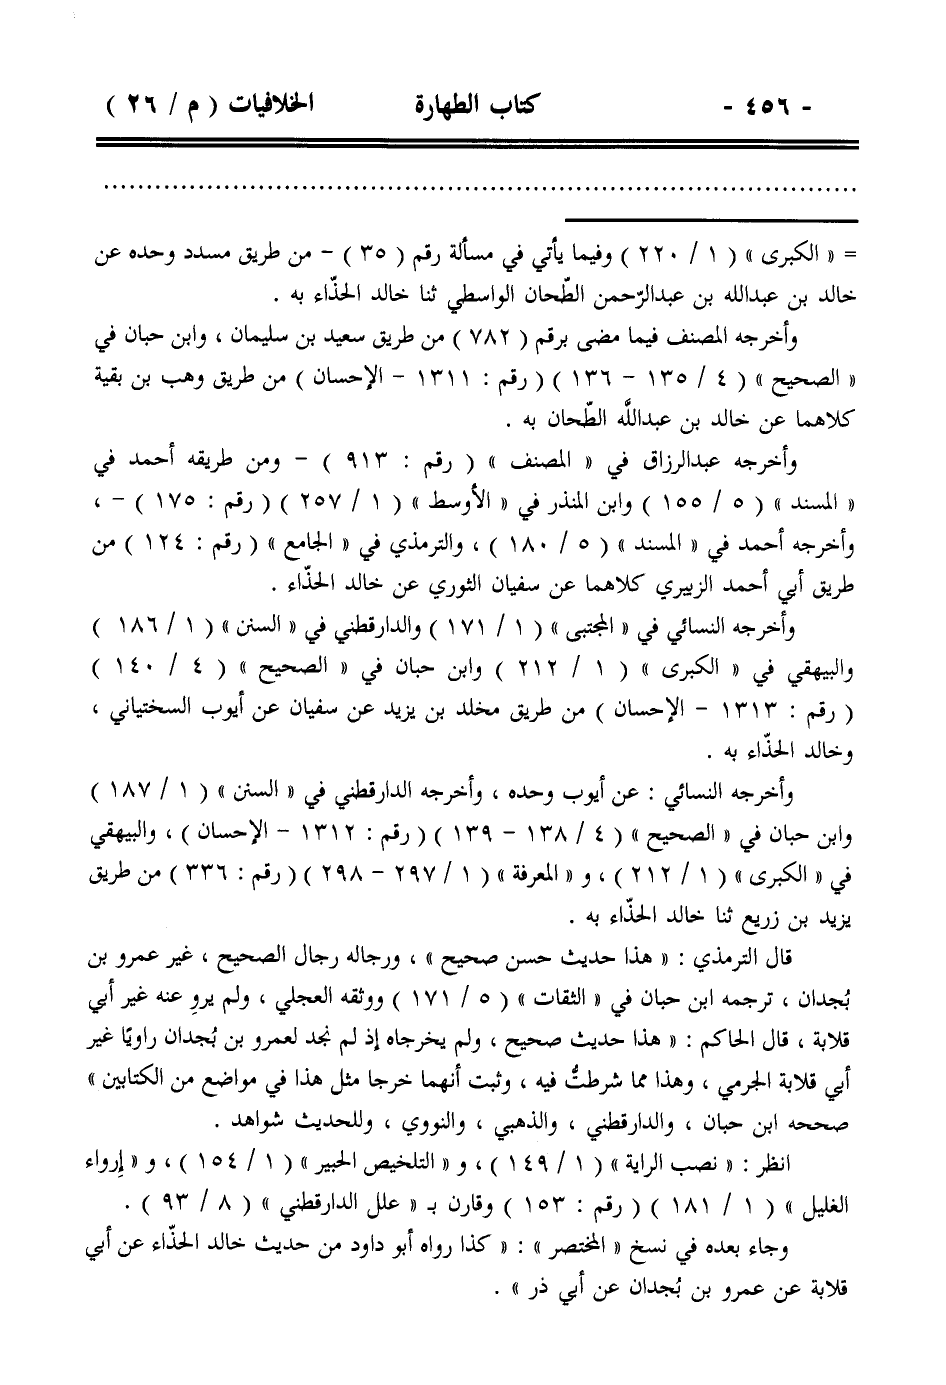 - ٤٥٦ - كتاب الطهارة الخلافيات ( م / ٢٦ )
..........................................................................................
= « الكبرى » ( ١ / ٢٢٠ ) وفيما يأتي في مسألة رقم ( ٣٥ ) – من طريق مسدد وحده عن
خالد بن عبدالله بن عبدالرّحمن الطّحان الواسطي ثنا خالد الحذّاء به .
وأخرجه المصنف فيما مضى برقم ( ٧٨٢ ) من طريق سعيد بن سليمان ، وابن حبان في
« الصحيح » ( ٤ / ١٣٥ – ١٣٦ ) ( رقم : ١٣١١ – الإحسان ) من طريق وهب بن بقية
كلاهما عن خالد بن عبداللَّه الطّحان به .
وأخرجه عبدالرزاق في « المصنف » ( رقم : ٩١٣ ) – ومن طريقه أحمد في
« المسند » ( ٥ / ١٥٥ ) وابن المنذر في « الأوسط » ( ١ / ٢٥٧ ) ( رقم : ١٧٥ ) – ،
وأخرجه أحمد في « المسند » ( ٥ / ١٨٠ ) ، والترمذي في « الجامع » ( رقم : ١٢٤ ) من
طريق أبي أحمد الزبيري كلاهما عن سفيان الثوري عن خالد الحذّاء .
وأخرجه النسائي في « المجتبى » ( ١ / ١٧١ ) والدارقطني في « السنن » ( ١ / ١٨٦ )
والبيهقي في « الكبرى » ( ١ / ٢١٢ ) وابن حبان في « الصحيح » ( ٤ / ١٤٠ )
( رقم : ١٣١٣ – الإحسان ) من طريق مخلد بن يزيد عن سفيان عن أيوب السختياني ،
وخالد الحذّاء به .
وأخرجه النسائي : عن أيوب وحده ، وأخرجه الدارقطني في « السنن » ( ١ / ١٨٧ )
وابن حبان في « الصحيح » ( ٤ / ١٣٨ – ١٣٩ ) ( رقم : ١٣١٢ – الإحسان ) ، والبيهقي
في « الكبرى » ( ١ / ٢١٢ ) ، و « المعرفة » ( ١ / ٢٩٧ – ٢٩٨ ) ( رقم : ٣٣٦ ) من طريق
يزيد بن زريع ثنا خالد الحذّاء به .
قال الترمذي : « هذا حديث حسن صحيح » ، ورجاله رجال الصحيح ، غير عمرو بن
بُجدان ، ترجمه ابن حبان في « الثقات » ( ٥ / ١٧١ ) ووثقه العجلي ، ولم يروِ عنه غير أبي
قلابة ، قال الحاكم : « هذا حديث صحيح ، ولم يخرجاه إذ لم نجد لعمرو بن بُجدان راويًا غير
أبي قلابة الجرمي ، وهذا مما شرطتُّ فيه ، وثبت أنهما خرجا مثل هذا في مواضع من الكتابين »
صححه ابن حبان ، والدارقطني ، والذهبي ، والنووي ، وللحديث شواهد .
انظر : « نصب الراية » ( ١ / ١٤٩ ) ، و « التلخيص الحبير » ( ١ / ١٥٤ ) ، و « إرواء
الغليل » ( ١ / ١٨١ ) ( رقم : ١٥٣ ) وقارن بـ « علل الدارقطني » ( ٨ / ٩٣ ) .
وجاء بعده في نسخ « المختصر » : « كذا رواه أبو داود من حديث خالد الحذّاء عن أبي
قلابة عن عمرو بن بُجدان عن أبي ذر » .